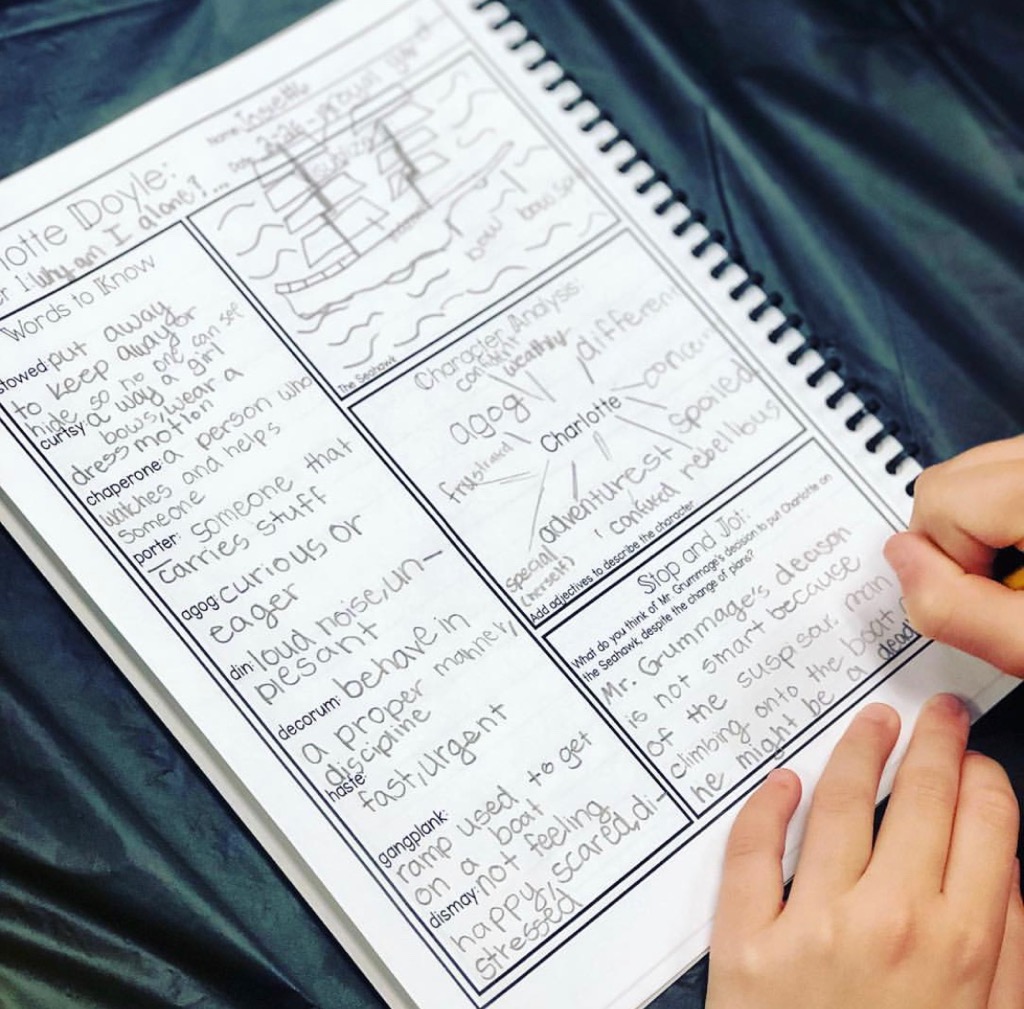 lotte Doyle:
1: Why am I alone?...
Name:
Date:
Words to Know
stowed: put away
to keep away or
hide so no one can see
curtsy: a way a girl
bows, wear a
dress motion
chaperone: a person who
watches and helps
someone
porter: someone that
carries stuff
agog: curious or
eager
din: loud noise, un-
plesant
decorum: behave in
a proper manner,
discipline
haste:
fast, urgent
gangplank:
ramp used to get
on a boat
dismay: not feeling
happy, scared, di-
stressed
bow
The Seahawk
Character Analysis:
wealthy
different
agog
Charlotte
spoiled
frustrated
adventurest
rebellious
confused
special
(herself)
Add adjectives to describe the character
Stop and Jot:
What do you think of Mr. Grummage's decision to put Charlotte on
the Seahawk, despite the change of plans?
Mr. Grummage's decison
is not smart because
of the suspisar, man
climbing onto the boat
he might be a dead